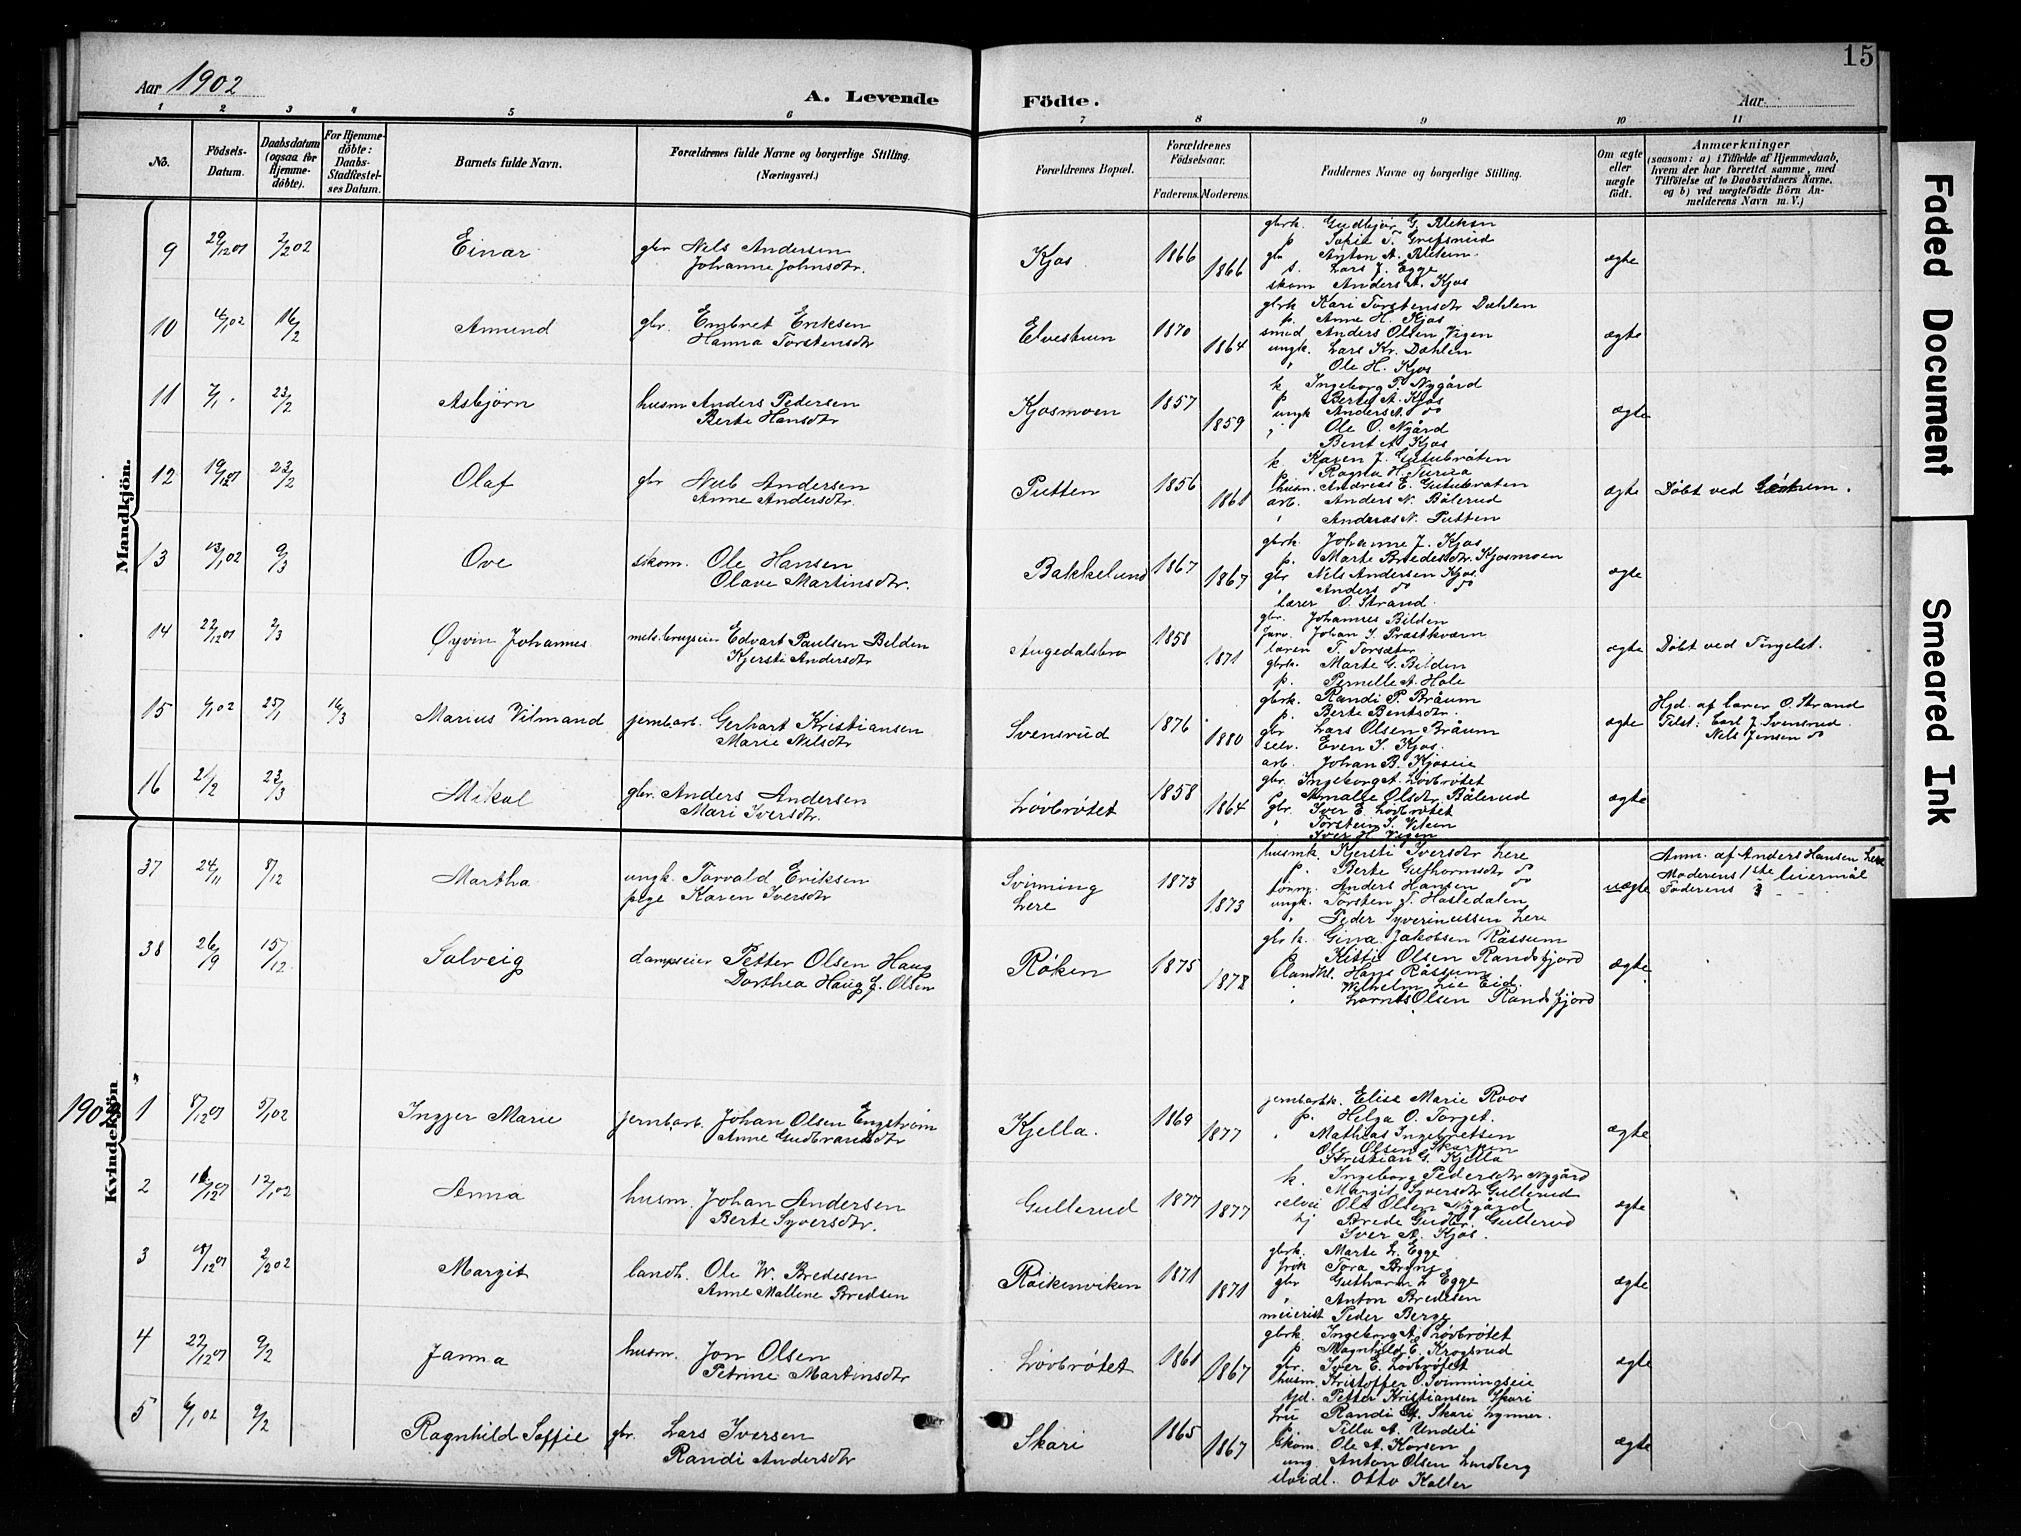 15
Aar 1902
A. Levende Födte.
Aar
1 2 3 4 5 6 7 8 9 10 11
No.
Födsels-Datum.
Daabsdatum (ogsaa for Hjemmedöbte).
For Hjemmedöbte: Daabs-Stadfæstelses Datum.
Barnets fulde Navn.
Forældrenes fulde Navne og borgerlige Stilling. (Næringsvei.)
Forældrenes Bopæl.
Forældrenes Födselsaar.
Faderens. Moderens.
Faddernes Navne og borgerlige Stilling.
Om ægte eller uægte födt.
Anmærkninger
(saasom: a) i Tilfælde af Hjemmedaab, hvem der har forrettet samme, med Tilföielse af to Daabsvidners Navne, og b) ved uægtefödte Börn Anmelderens Navn m. V.)
Mandkjön.
9 29/12 01 2/2 02 Einar gbr Nels Andersen
Johanne Johnsdtr.
Kjos 1866 1866
gbrk. Gudbjør G. Bleken
p Sofie T. Grefsrud
gbr Anton A. Bleken
s. Lars J. Egge
skom Anders A. Kjos
ægte
10 4/1 02 16/2 Amund gbr. Embret Eriksen
Hanna Torstensdtr
Elvestuen 1870 1864
gbrk Kari Torstensdtr Dæhlen
p. Anne H. Kjos
smed Anders Olsen Vigen
ungk. Lars Kr. Dæhlen
" Ole H. Kjos
ægte
11 7/1 . 23/2 Asbjørn husm Anders Pedersen
Berte Hansdtr
Kjosmoen 1857 1859
k Ingeborg P. Nygård
p Berte A. Kjos
ungk Anders A. do
" Ole O. Nygård
Bent A. Kjos
ægte
12 19/12 01 23/2 Olaf gbr Nub Andersen
Anne Andersdtr.
Putten 1856 1861
k Karen J. Gutubråten
p. Ragna H.
husm. Andreas E. Gutubråten
arb. Anders N. Bålerud
" Anders N. Putten
ægte Døbt ved
13 13/1 02 9/3 Ove skom. Ole Hansen
Olave Martinsdtr.
Bakkelund 1867 1867
gbrk. Johanne J. Kjos
p. Marte Bredesdtr. Kjosmoen
gbr Nels Andersen Kjos
" Anders do do
lærer O. Strand
ægte
14 22/12 01 2/3 Øyvin Johannes møllebrugseier Edvart Paulsen Bilden
Kjersti Andersdtr
Augedalsbro 1858 1871
gbr. Johannes Bilden
Johan J. Præstkværn
lærer T. Torsæter
gbrk. Marte G. Bilden
p. Pernelle A. Hole
ægte Døbt ved Tingelst.
15 6/1 02 25/1 16/3 Marius Vilmand jernbarb. Gerhart Kristiansen
Marie Nilsdtr
Svensrud 1876 1880
gbrk. Randi P. Bråum
p. Berte Bentsdtr.
gbr Lars Olsen Bråum
selv. Even I. Kjos.
arb. Johan B. Kjoseie
ægte
Hjd. af lærer O. Strand
Tilst: Carl J. Svensrud.
Nels Jensen do
16 21/2 23/3 Mikal gbr. Anders Andersen
Mari Iversdtr.
Løvbrøtet 1858 1864
gbr. Ingeborg A. Løvbrøtet
p. Amalie Olsdtr. Bålerud
gbr. Iver E. Løvbrøtet
" Torstein I. Velein
Iver H. Vigen
ægte
Kvindekjön
37 24/11 8/12 Martha ungk. Torvald Eriksen
pige Karen Iversdtr
Svinning
Lere
1873 1873
husmk. Kjersti Iversdtr Lere
p. Berte Guthormsdtr do
tømm. Anders Hansen do
ungk. Torsten J. Hasledalen
" Peder Syverinussen Lere
uægte
Anm. af Anders Hansen Lere
Moderens 1ste leiermål
Faderens 3 -
38 26/9 15/12 Solveig dampseier Petter Olsen Haug
Dorthea Haug f. Olsen
Røken 1875 1872
gbrk. Gina Jakobsen Råssum
p. Kitti Olsen Randsfjord
landhl. Hans Råssum
" Wilhelm Lie Eid.
" Lornts Olsen Randsfjord
ægte.
1902
1 8/12 01 5/1 02 Ingjer Marie jernbarb. Johan Olsen Engstrøm
Anne Gudbrandsdtr
Kjella. 1869 1877
jernbarbk. Elise Marie Roos
p. Helga O. Torget.
" Mathias Ingebretsen
Ole Olsen Skarpen
Kristian G. Kjella
ægte
2 16/12 01 12/1 02 Anna husm. Johan Andersen
Berte Syversdtr.
Gullerud 1877 1877
k. Ingeborg Pedersdtr Nygård
Margit Syversdtr Gullerud
selvei Ole Olsen Nygård
hj Brede Gudbr. Gullerud
Iver A. Kjos.
ægte
3 18/12 01 2/2 02 Margit landh. Ole W. Bredesen
Anne Mallene Bredsen
Røikenviken 1871 1871
gbrk. Marte L. Egge
frøk Tora Bring
gbr Guthorm L Egge
" Anton Bredesen
meierist Peder Berge
ægte
4 22/12 01 9/2 Janna husm. Jon Olsen
Petrine Martinsdtr
Løvbrøtet 1861 1867
gbrk. Ingeborg A. Løvbrøtet
p Magnhild E. Krogsrud
gbr. Iver E. Løvbrøtet
husm. Kristoffer O. Svinningseie
tjd. Petter Kristiansen Skari
ægte
5 6/1 02 9/2 Ragnhild Soffie gbr. Lars Iversen
Randi Andersdtr
Skari 1865 1867
fru Randi G. Skari Lynner.
p Tilla A. Undeli
skom. Ole A. Korsen
ung Anton Olsen Lundberg
Otto Koller
ægte
Faded Document
Smeared Ink